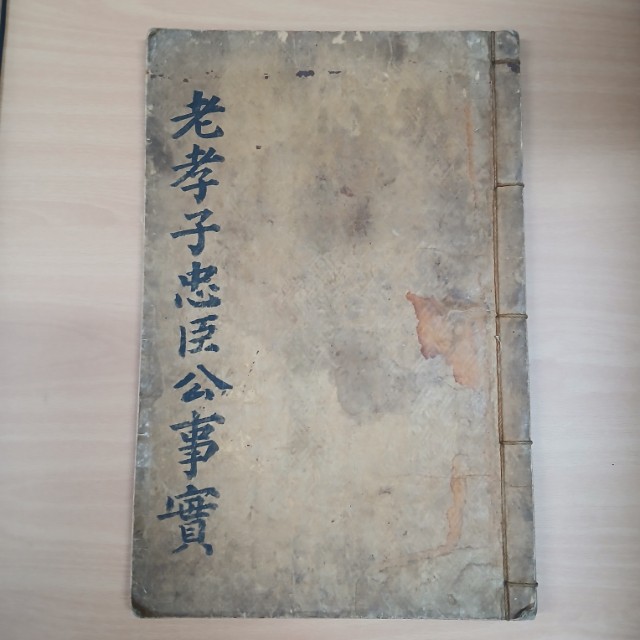 老孝子忠臣公事實